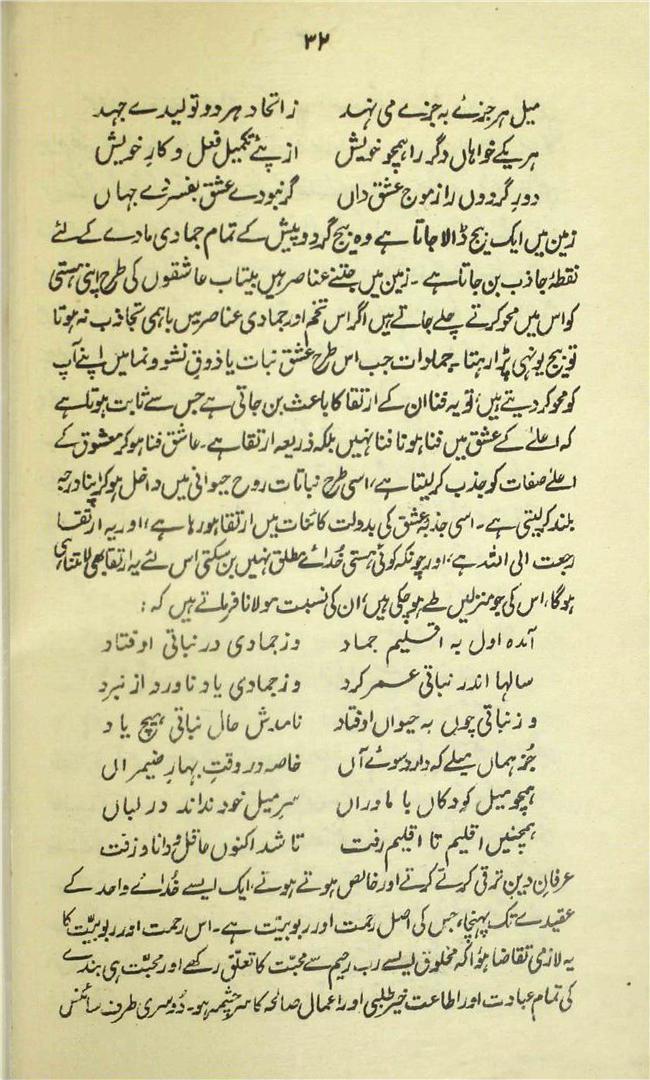 ۳۲
میل ہر جزئے بہ جزے می نہد زاتحاد ہر دو تولیدے جہد
ہریکے خواہاں دگر را ہمچو خویش از پئے تکمیل فعل و کارِ خویش
دورِ گردوں را ز موج عشق داں گر نبودے عشق بفسردے جہاں
زمین میں ایک بیج ڈالا جاتا ہے وہ بیج گردوپیش کے تمام جمادی مادے کے لئے
نقطۂ جاذب بن جاتا ہے ۔ زمین میں جتنے عناصر ہیں بیتاب عاشقوں کی طرح اپنی ہستی
کو اس میں محو کرتے چلے جاتے ہیں اگر اس تخم اور جمادی عناصر میں باہمی تجاذب نہ ہوتا
تو بیج یونہی پڑا رہتا ۔ جمادات جب اس طرح عشق نبات یا ذوقِ نشوونما میں اپنے آپ
کو محو کر دیتے ہیں تو یہ فنا ان کے ارتقا کا باعث بن جاتی ہے جس سے ثابت ہوتا ہے
کہ اعلےٰ کے عشق میں فنا ہونا فنا نہیں بلکہ ذریعہ ارتقا ہے ۔ عاشق فنا ہو کر معشوق کے
اعلےٰ صفات کو جذب کر لیتا ہے، اسی طرح نباتات روح حیوانی میں داخل ہو کر اپنا درجہ
بلند کر لیتی ہے ۔ اسی جذبۂ عشق کی بدولت کائنات میں ارتقا ہو رہا ہے، اور یہ ارتقا
رجعت الی اللہ ہے، اور چونکہ کوئی ہستی خدائے مطلق نہیں بن سکتی اس لئے یہ ارتقا بھی لامتناہی
ہوگا، اس کی جو منزلیں طے ہو چکی ہیں، ان کی نسبت مولانا فرماتے ہیں کہ :
آمدہ اول بہ اقلیم جماد وز جمادی در نباتی اوفتاد
سالہا اندر نباتی عمر کرد وز جمادی یاد ناورد از نبرد
وز نباتی چوں بہ حیواں اوفتاد نامدش حال نباتی ہیچ یاد
جُز ہماں میلے کہ دارد سوئے آں خاصہ در وقتِ بہارِ ضیمراں
ہمچو میل کودکاں با مادراں سرِ میل خود نداند در لباں
ہمچنیں اقلیم تا اقلیم رفت تا شد اکنوں عاقل و دانا و زفت
عرفانِ دین ترقی کرتے کرتے اور خالص ہوتے ہوتے، ایک ایسے خدائے واحد کے
عقیدے تک پہنچا، جس کی اصل رحمت اور ربوبیّت ہے ۔ اس رحمت اور ربوبیّت کا
یہ لازمی تقاضا ہؤا کہ مخلوق ایسے رب رحیم سے محبّت کا تعلق رکھے اور محبّت ہی بندے
کی تمام عبادت اور اطاعت خیر طلبی اور اعمال صالحہ کا سرچشمہ ہو ۔ دُوسری طرف سائنس